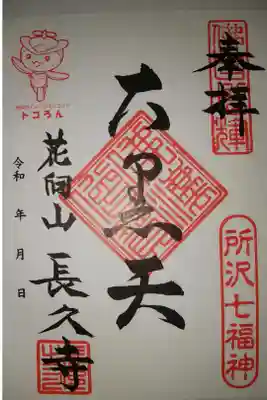 奉拝
大黒天
花向山 長久寺
令和 年 月 日
所沢七福神
トコろん